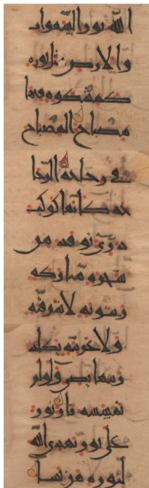 الله نور السموات
والارض مثل نوره
كمشكوة فيها
مصباح المصباح
في زجاجة الزجا
جة كانها كوكب
دري توقد من
شجرة مباركة
زيتونة لا شرقية
ولا غربية يكاد
زيتها يضي ولو لم
تمسسه نار نور
على نور يهدي الله
لنوره من يشا